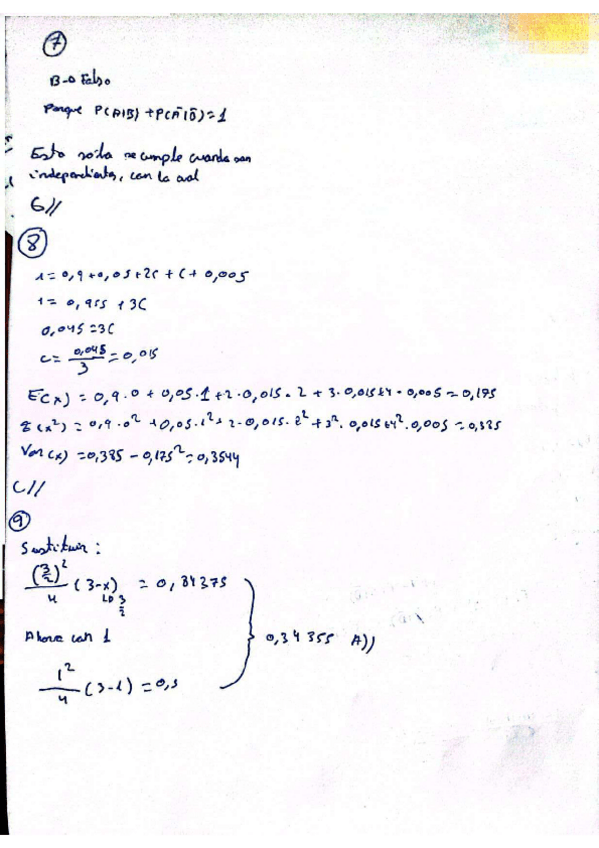 7
B → Falso
Porque P(A|B) + P(Ā|B̄) = 1
Esto solo se cumple cuando son
independientes, con lo cual
B//
8
1 = 0,9 + 0,05 + 2C + C + 0,005
1 = 0,955 + 3C
0,045 = 3C
C = 0,045/3 = 0,015
E(x) = 0,9·0 + 0,05·1 + 2·0,015·2 + 3·0,015 + 4·0,005 = 0,175
E(x²) = 0,9·0² + 0,05·1² + 2·0,015·2² + 3²·0,015 + 4²·0,005 = 0,385
Var(x) = 0,385 − 0,175² = 0,3544
C//
9
Sustituir:
(3/2)²/4 (3-x) = 0,84375
↳ 3/2
Ahora con 1
0,34355 A))
1²/4 (3-1) = 0,5